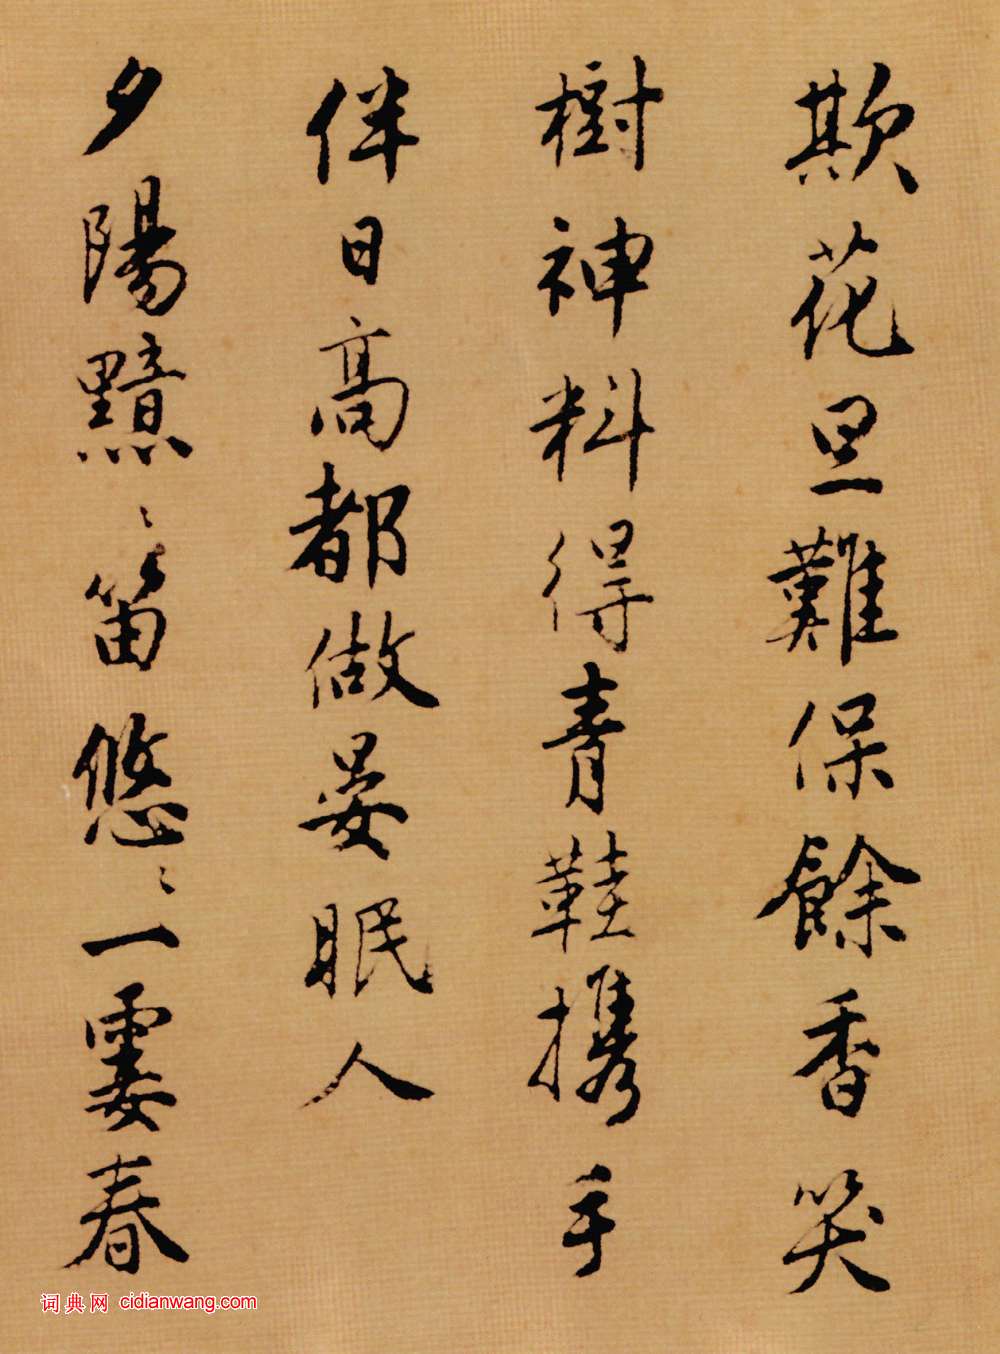 欺花旦難保餘香笑
樹神料得青鞋携手
伴日高都做晏眠人
夕陽黯〻笛悠〻一霎春
词典网 cidianwang.com